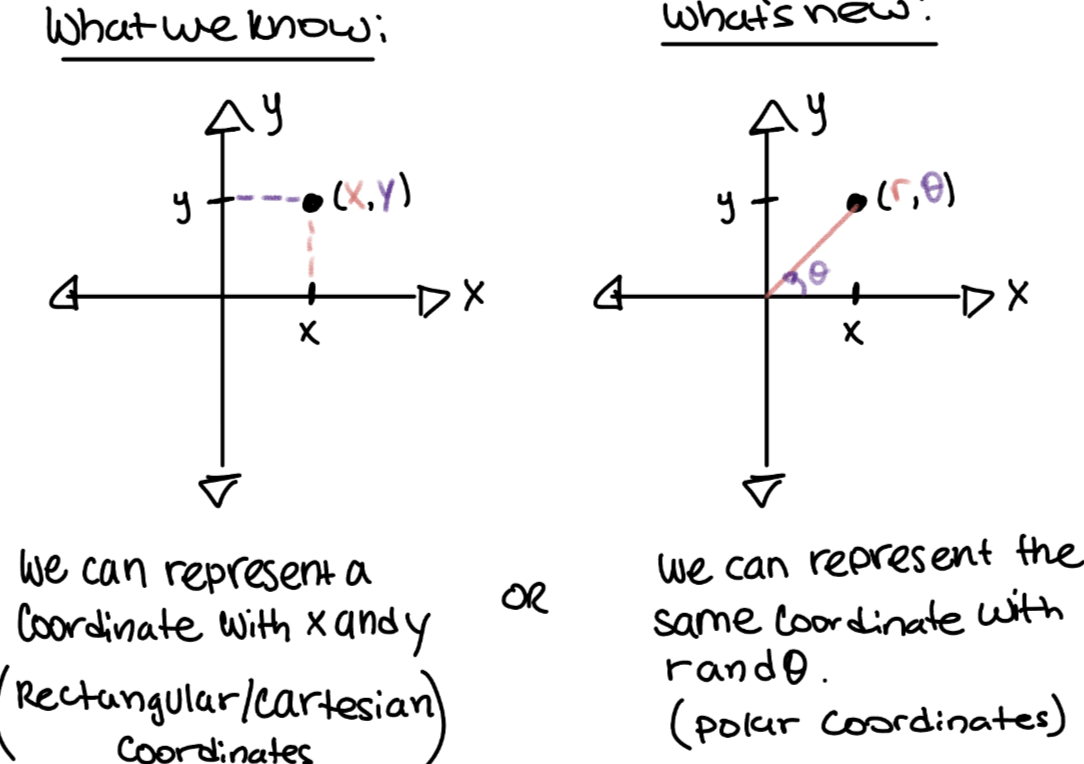 What we know:
y
y
(x,y)
x
x
we can represent a
coordinate with x and y
(Rectangular/cartesian
coordinates)
OR
What's new:
y
y
(r,θ)
θ
x
x
we can represent the
same coordinate with
r and θ.
(polar coordinates)